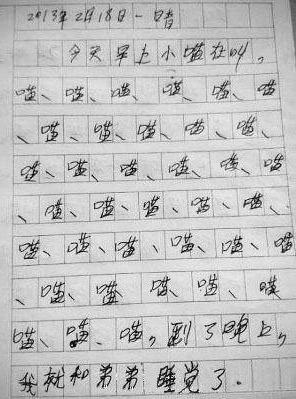 2013年2月18日一晴
今天早上小喵在叫，
喵、喵、喵、喵、喵、喵
、喵、喵、喵、喵、喵、
喵、喵、喵、喵、喵、喵
、喵、喵、喵、喵、喵、
喵、喵、喵、喵、喵、喵
、喵、喵、喵、喵、喵
喵、喵、喵，到了晚上，
我就和弟弟睡觉了.